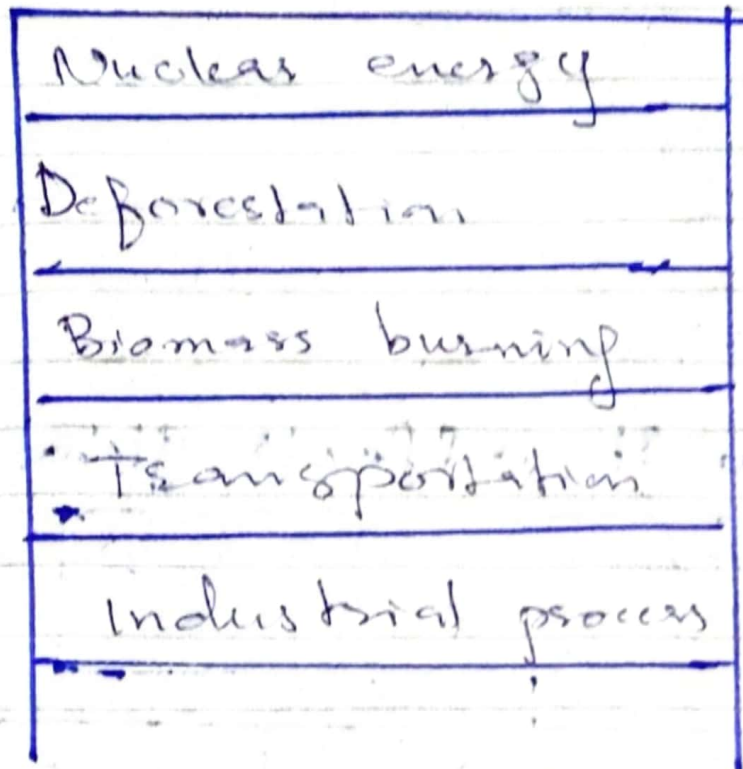 Nuclear energy
Deforestation
Biomass burning
Transportation
Industrial process